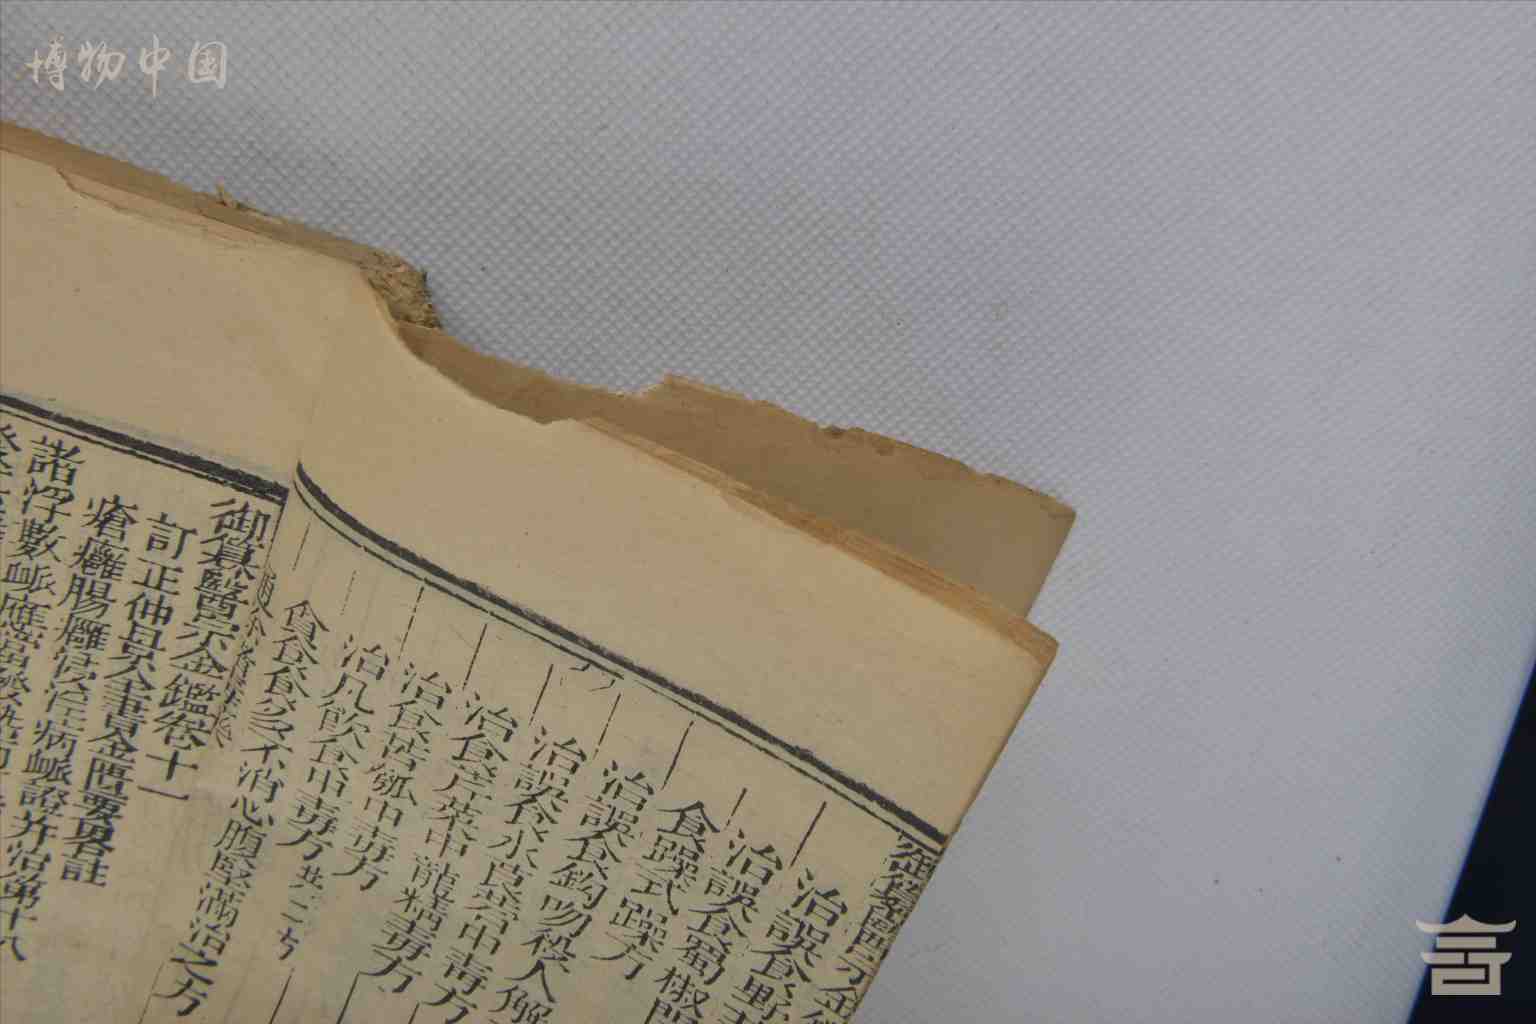 博物中国
治誤食野
治誤食蜀椒閉
食躁式躁方
治誤食鈎吻殺人解
治誤食水莨菪中毒方
治食芹菜中龍精毒方
治食苦瓠中毒方
治凡飲食中毒方 共三方
貪食食多不消心腹堅滿治之方
御纂醫宗金鑑卷十一
訂正仲景全書金匱要畧註
瘡癰腸癰浸淫病脈證并治第十八
諸浮數脈應當